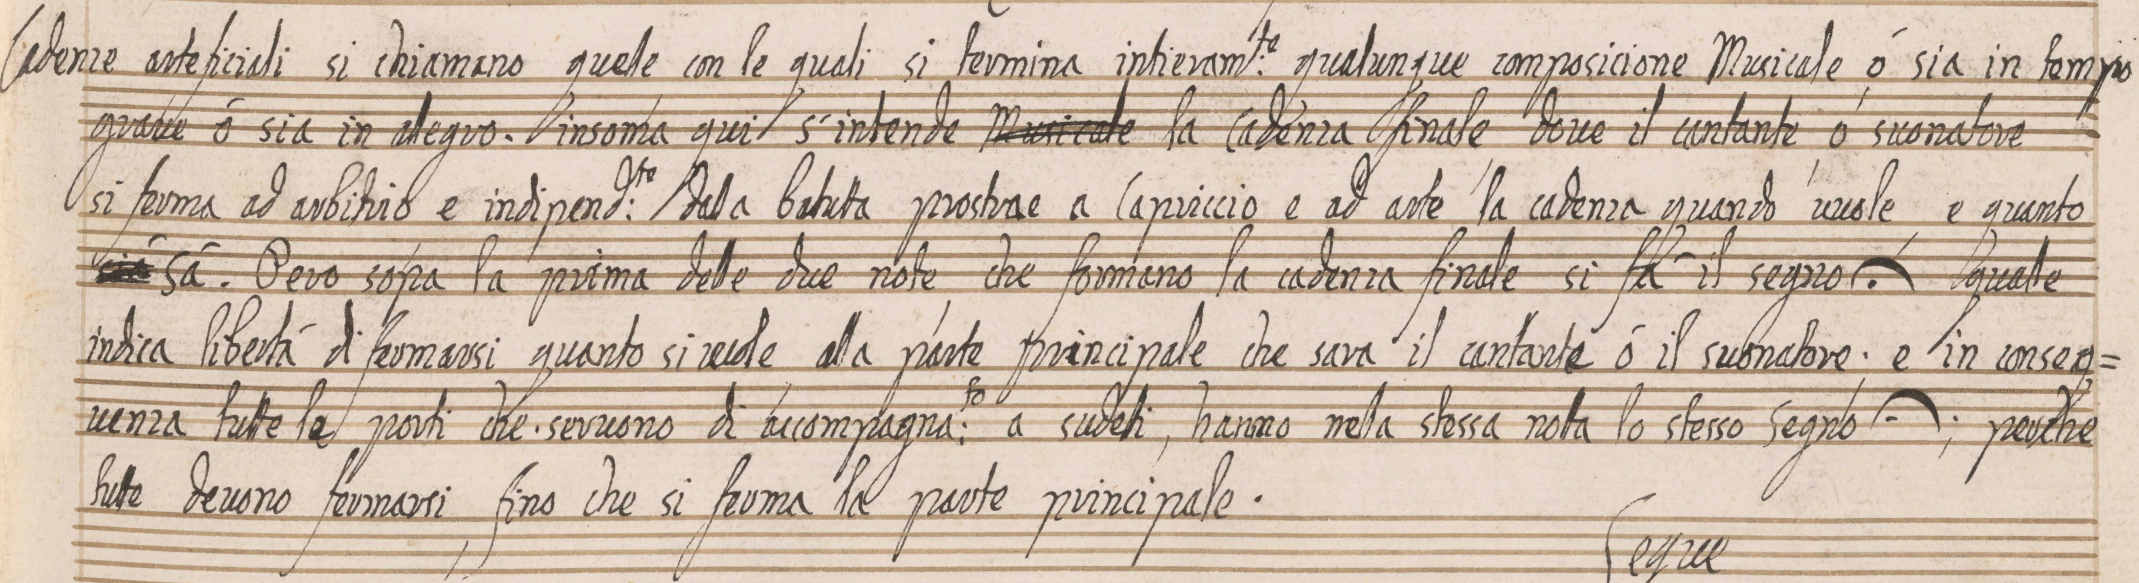 Cadenze arteficiali si chiamano quele con le quali si termina intieram.te qualunque composicione Musicale ó sia in tempo
grave ó sia in allegro. insoma qui s'intende Musicale la Cadenza finale dove il cantante ó suonatore
si ferma ad arbitrio e indipend.te dalla batutta prostrae a Capriccio e ad arte la cadenza quando vuole e quanto
sá. Pero sopra la prima delle due note che formano la cadenza finale si fá il segno 𝄐 quale
indica libertá di fermarsi quanto si vuole alla parte principale che sara il cantante ó il suonatore. e in conseq=
uenza tutte le parti che servono di accompagna:to a sudeti, hanno nella stessa notta lo stesso segno 𝄐; perche
tutte devono fermarsi, fino che si ferma la parte principale.
Segue